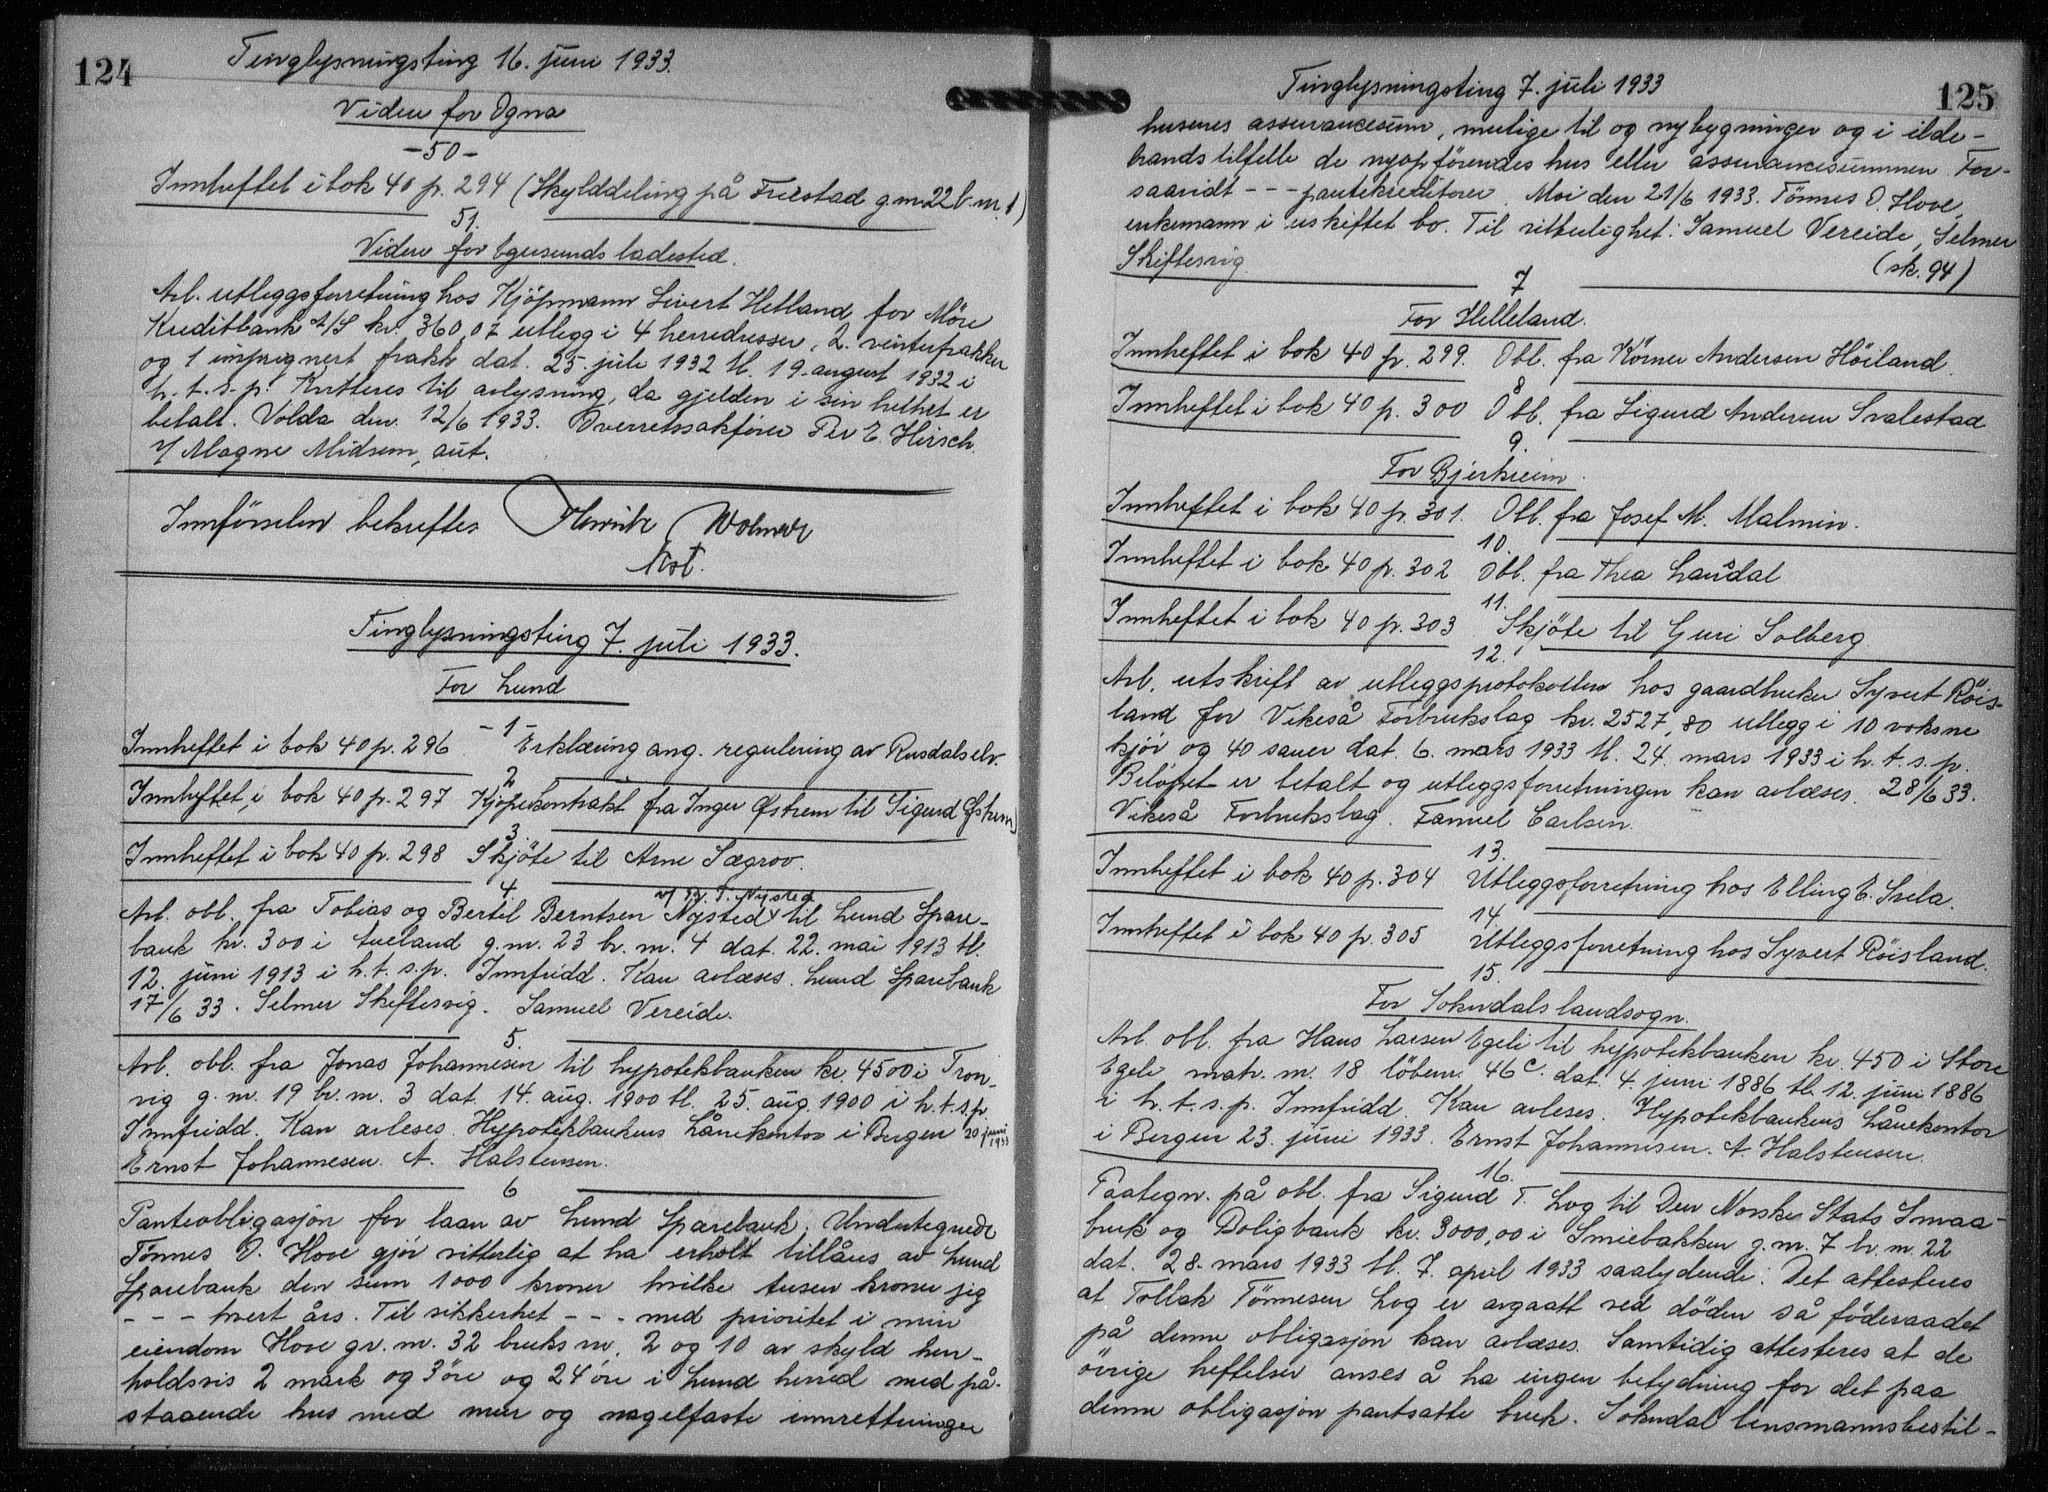 124
Tinglysningsting 16. juni 1933.
Videre for Ogna
-50-
Innheftet i bok 40 p. 294 (Skylddeling på Frestad g.nr. 22 b.nr. 1)
51.
Videre for Egersunds ladested.
Avl. utleggsforretning hos Kjöpmann Sivert Hetland for Möre
Kreditbank A/S kr. 360,07 utlegg i 4 herredresser, 2. vinterfrakker
og 1 impregnert frakk dat. 25. juli 1932 tl. 19. august 1932 i
h. t. s. p. Kvitteres til avlysning, da gjelden i sin helhet er
betalt. Volda den 12/6 1933. Overretssakförer Per E. Hirsch.
e/ Magne Midsem, aut.
Innförselen bekreftes Henrik Wolmer
kst.
Tinglysningsting 7. juli 1933.
For Lund
-1-
Innheftet i bok 40 p. 296 Erklæring ang. regulering av Rusdalselv.
2
Innheftet i bok 40 p. 297 Kjöpekontrakt fra Inger Østrem til Sigurd Østrem
3.
Innheftet i bok 40 p. 298 Skjöte til Arne Sægrov.
4.
v/ B. T. Nysted
Avl. obl. fra Tobias og Bertel Berntsen Nysted x til Lund Spare-
bank kr. 300 i Aueland g.nr. 23 br.nr. 4 dat. 22. mai 1913 tl.
12. juni 1913 i h.t.s.p. Innfridd. Kan avlæses. Lund Sparebank
17/6 33. Selmer Skiftesvig. Samuel Vereide.
5.
Avl. obl. fra Jonas Johannesen til hypotekbanken kr. 4500 i Tron-
vig g.nr. 19 br.nr. 3 dat. 14. aug. 1900 tl. 25. aug. 1900 i h.t.s.p.
Innfridd. Kan avleses. Hypotekbankens Lånekontor i Bergen 20 juni 1933
Ernst Johannesen. A. Halstensen.
6
Panteobligasjon for laan av Lund Sparebank. Undertegnede
Tönnes O. Hove gjör vitterlig at ha erholt tillåns av Lund
Sparebank den sum 1000 kroner hvilke tusen kroner jeg
- - - hvert års. Til sikkerhet - - - med prioritet i min
eiendom Hove gr.nr. 32 bruks nr. 2 og 10 av skyld hen-
holdsvis 2 mark og 3 öre og 24 öre i Lund herred med på-
staaende hus med mur og nagelfaste innretninger
125
Tinglysningsting 7. juli 1933
husenes assurancesum, mulige til og nybygninger og i ilde-
brandstilfelle de nyopförendes hus eller assurancesummen. For-
saavidt - - - pantekreditorer. Moi den 21/6 1933. Tönnes O. Hove,
enkemann i uskiftet bo. Til vitterlighet: Samuel Vereide, Selmer
Skiftesvig. (sk. 94)
7
For Helleland.
Innheftet i bok 40 p. 299. Obl. fra Körner Andersen Höiland.
8
Innheftet i bok 40 p. 300 Obl. fra Sigurd Andersen Svalestad
9.
For Bjerkreim.
Innheftet i bok 40 p. 301. Obl. fra Josef M. Malmin.
10.
Innheftet i bok 40 p. 302 Obl. fra Thea Lausdal
11.
Innheftet i bok 40 p. 303 Skjöte til Guri Solberg.
12.
Avl. utskrift av utleggsprotokollen hos gaardbruker Syvert Röis-
land for Vikeså Forbrukslag kr. 2527,80 utlegg i 10 voksne
kjör og 40 sauer dat. 6. mars 1933 tl. 24. mars 1933 i h.t.s.p.
Belöpet er betalt og utleggsforretningen kan avlæses. 28/6 33.
Vikeså Forbrukslag. Fanuel Carlsen.
13.
Innheftet i bok 40 p. 304 Utleggsforretning hos Elling E. Svela.
14
Innheftet i bok 40 p. 305 Utleggsforretning hos Syvert Röisland.
15.
For Sokndals landsogn.
Avl. obl. fra Hans Larsen Egeli til hypotekbanken kr. 450 i Store
Egeli matr. nr. 18 löbenr. 46c. dat. 4. juni 1886 tl. 12. juni 1886
i h. t. s. p. Innfridd. Kan avleses. Hypotekbankens Lånekontor
i Bergen 23. juni 1933. Ernst Johannesen. A. Halstensen.
16.
Paategn. på obl. fra Sigurd T. Log til Den Norske Stats Smaa-
bruk og Boligbank kr. 3000,00 i Smiebakken g.nr. 7 br.nr. 22
dat. 28. mars 1933 tl. 7. april 1933 saalydende: Det attesteres
at Tollak Tönnesen Log er avgaatt ved döden så föderaadet
på denne obligasjon kan avlæses. Samtidig attesteres at de
övrige heftelser anses å ha ingen betydning for det paa
denne obligasjon pantsatte bruk. Sokndal lensmannsbestil-